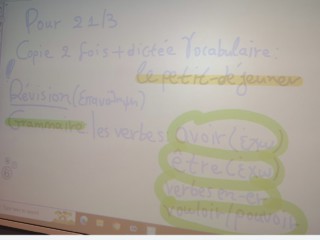 Pour 21/3
Copie 2 fois + dictée Vocabulaire:
le petit-déjeuner
Révision (Επανάληψη)
Grammaire les verbes avoir (έχω
être (έχω
verbes en -er
vouloir / pouvoir